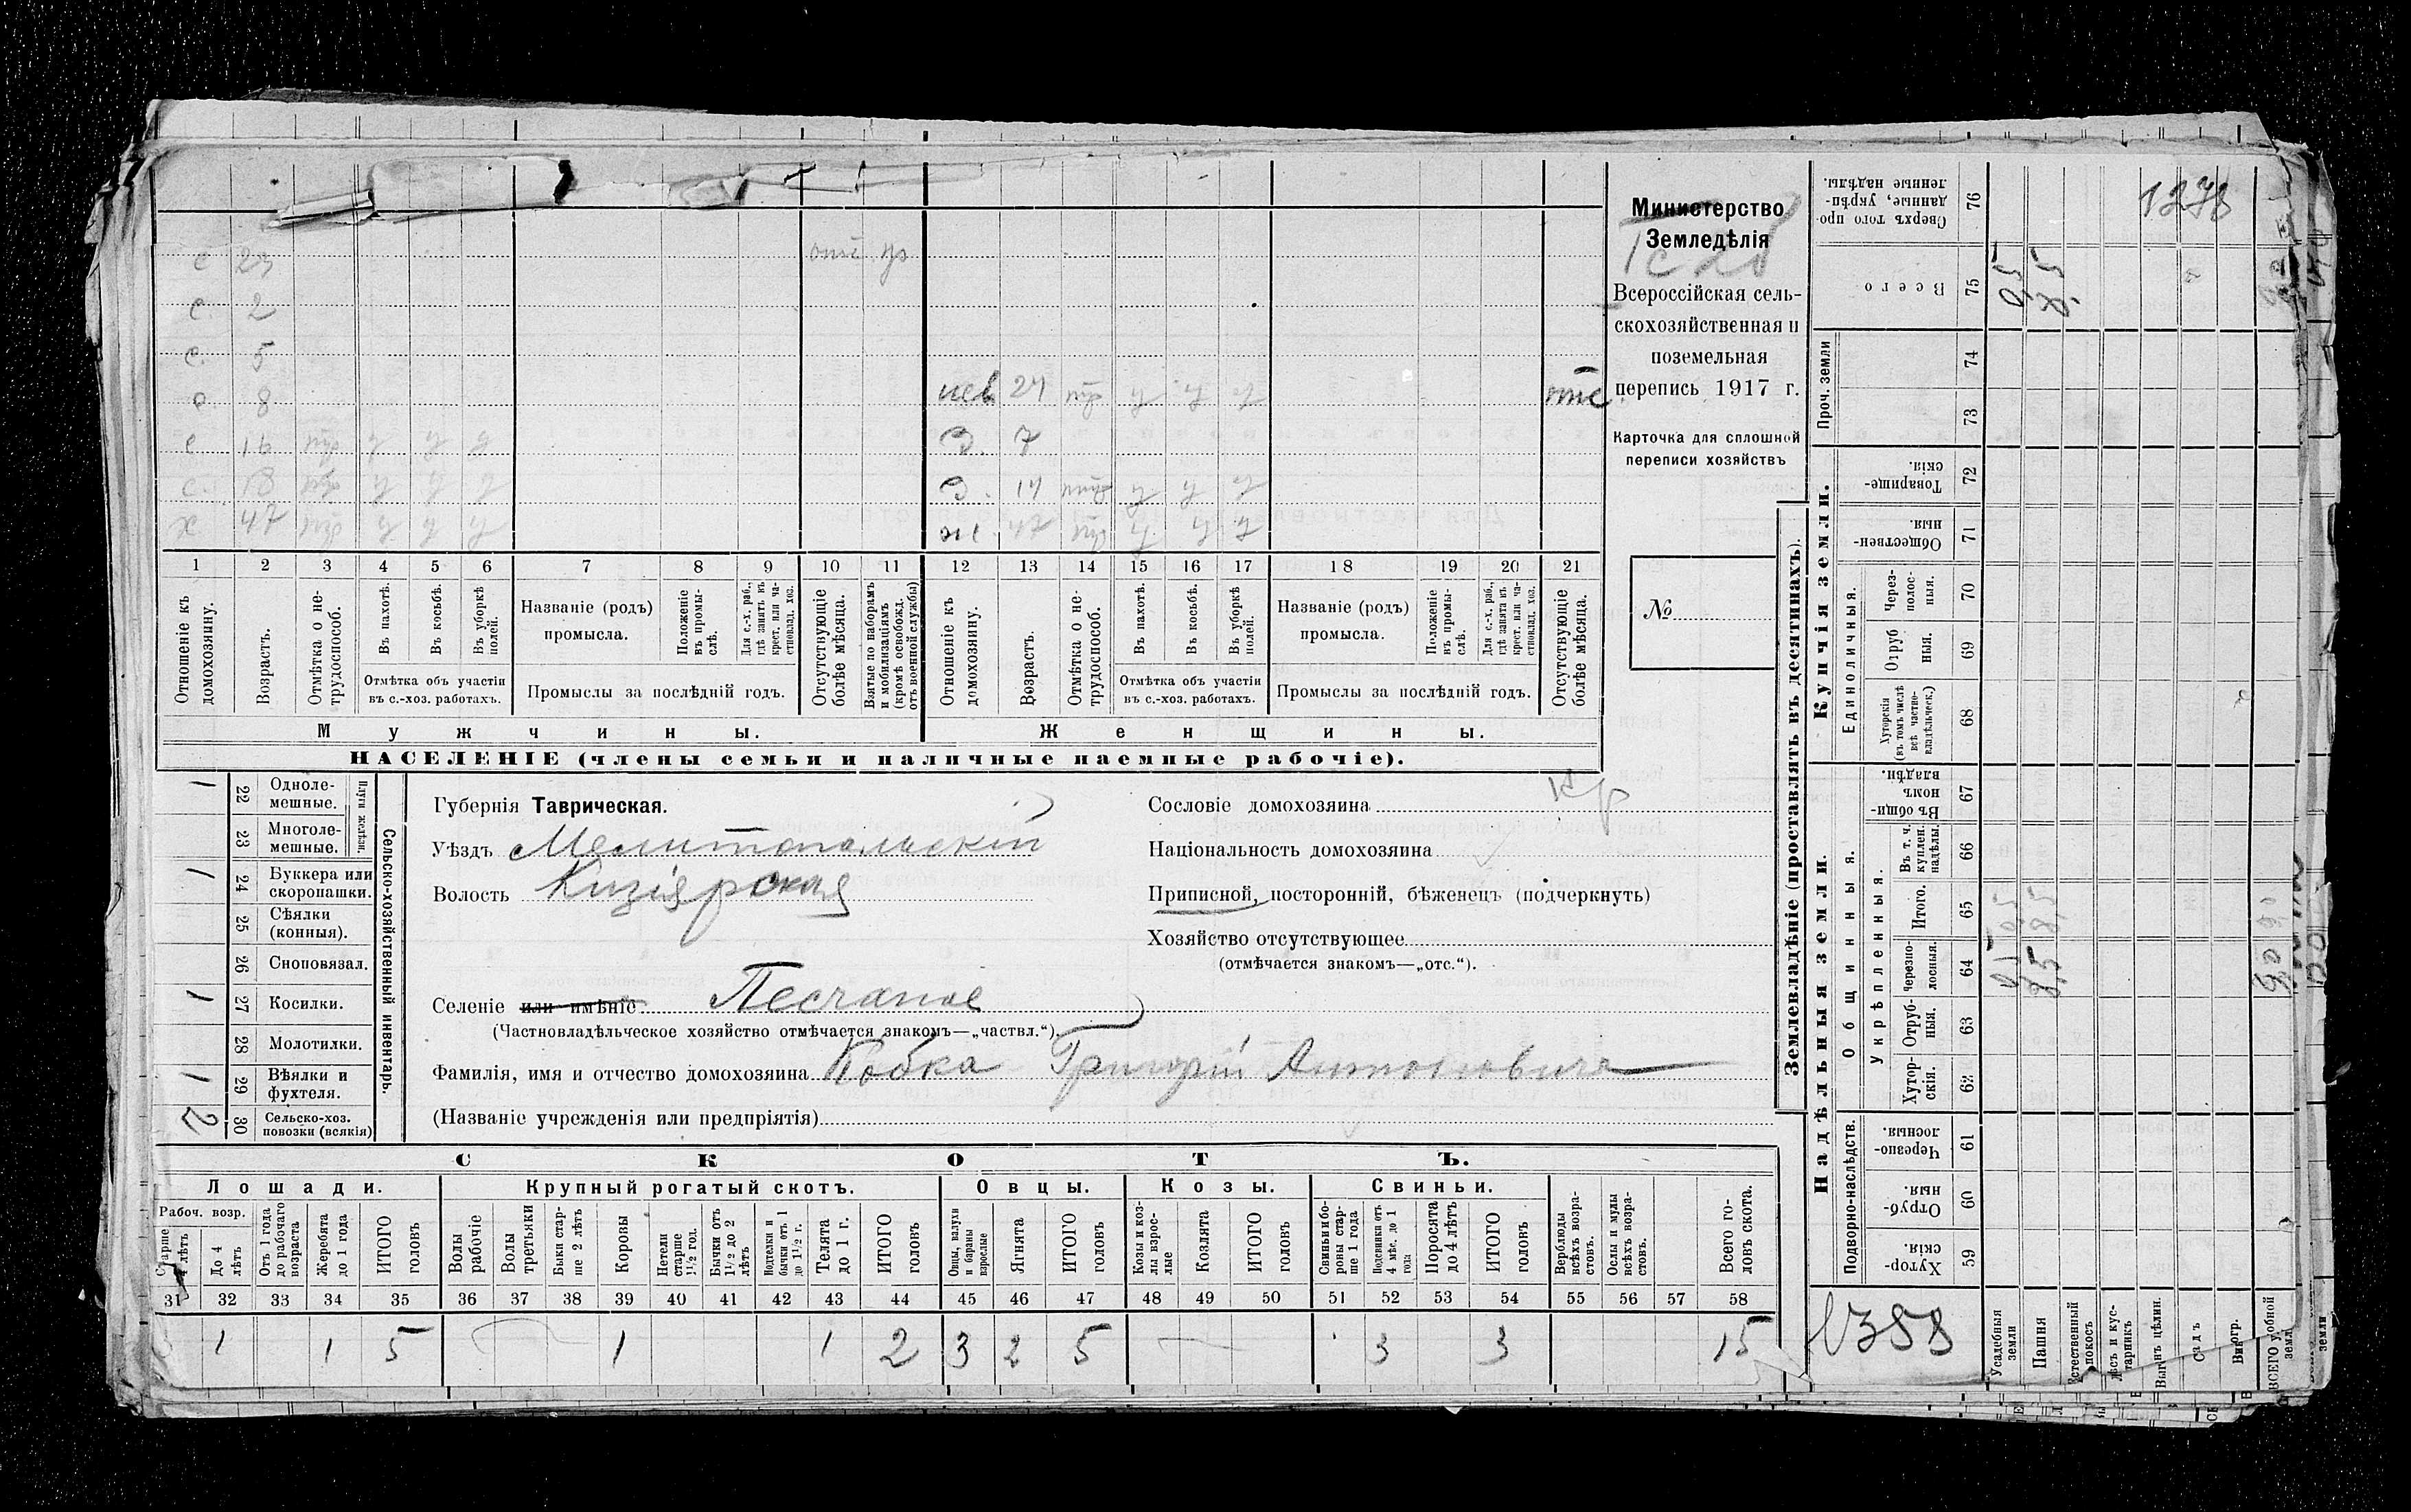 с 23 отс
с. 2
с. 5
с. 8 нев. 24 отс
с 16 у у у д. 7
с. 18 у у у д. 14 у у у
х 47 у у у ж 47 у у у
1 2 3 4 5 6 7 8 9 10 11 12 13 14 15 16 17 18 19 20 21
Отношеніе къ домохозяину.
Возрастъ.
Отмѣтка о нетрудоспособ.
Въ пахотѣ.
Въ косьбѣ.
Въ уборкѣ полей.
Отмѣтка объ участіи въ с.-хоз. работахъ.
Названіе (родъ) промысла.
Положеніе въ промыслѣ.
Для с.-х. раб., гдѣ занятъ къ крест. или частновлад. хоз.
Промыслы за послѣдній годъ.
Отсутствующіе болѣе мѣсяца.
Взятые по наборамъ и мобилизаціямъ (кромѣ освобожд. отъ военной службы)
Отношеніе къ домохозяину.
Возрастъ.
Отмѣтка о нетрудоспособ.
Въ пахотѣ.
Въ косьбѣ.
Въ уборкѣ полей.
Отмѣтка объ участіи въ с.-хоз. работахъ.
Названіе (родъ) промысла.
Положеніе въ промыслѣ.
Для с.-х. раб., гдѣ занята въ крест. или частновлад. хоз.
Промыслы за послѣдній годъ.
Отсутствующіе болѣе мѣсяца.
Мужчины.
Женщины.
НАСЕЛЕНІЕ (члены семьи и наличные наемные рабочіе).
Министерство
Земледѣлія
Всероссійская сель-
скохозяйственная и
поземельная
перепись 1917 г.
Карточка для сплошной
переписи хозяйствъ
№
Сельско-хозяйственный инвентарь.
Плуги желѣзн.
1 22 Одноле-мешные.
23 Многоле-мешные.
1 24 Буккера или скоропашки.
25 Сѣялки (конныя).
26 Сноповязал.
1 27 Косилки.
28 Молотилки.
1 29 Вѣялки и фухтеля.
2 30 Сельско-хоз. повозки (всякія)
Губернія Таврическая.
Уѣздъ Мелитопольскій
Волость Кизіярская
Селеніе или имѣніе Песчаное
(Частновладѣльческое хозяйство отмѣчается знакомъ—„частвл.“).
Фамилія, имя и отчество домохозяина Кобка Григорій Антоновичъ
(Названіе учрежденія или предпріятія)
Сословіе домохозяина кр
Національность домохозяина
Приписной, посторонній, бѣженецъ (подчеркнуть)
Хозяйство отсутствующее
(отмѣчается знакомъ—„отс.“).
СКОТЪ.
Лошади. Крупный рогатый скотъ. Овцы. Козы. Свиньи.
Рабоч. возр.
Старше 4 лѣтъ
До 4 лѣтъ
Отъ 1 года до рабочаго возраста
Жеребята до 1 года
ИТОГО головъ
Волы рабочіе
Волы третьяки
Быки старше 2 лѣтъ
Коровы
Нетели старше 1½ год.
Бычки отъ 1½ до 2 лѣтъ
Подтелки и бычки отъ 1 до 1½ г.
Телята до 1 г.
ИТОГО головъ
Овцы, валухи и бараны взрослые
Ягнята
ИТОГО головъ
Козы и козлы взрослые
Козлята
ИТОГО головъ
Свиньи и боровы старше 1 года
Подсвинки отъ 4 мѣс. до 1 года
Поросята до 4 лѣтъ
ИТОГО головъ
Верблюды всѣхъ возрастовъ.
Ослы и мулы всѣхъ возрастовъ.
Всего головъ скота.
31 32 33 34 35 36 37 38 39 40 41 42 43 44 45 46 47 48 49 50 51 52 53 54 55 56 57 58
1 1 5 1 1 2 3 2 5 3 3 15
Землевладѣніе (проставлять въ десятинахъ).
Надѣльныя земли.
Купчія земли.
Проч. земли
Подворно-наслѣдств.
Общинныя.
Укрѣпленныя.
Единоличныя.
Хуторскія. 59
Отрубныя 60
Черезполосныя. 61
Хуторскія. 62
Отрубныя. 63
Черезполосныя. 64
Итого. 65
Въ т. ч. куплен. надѣлы. 66
Въ общинномъ владѣн. 67
Хуторскія (въ томъ числѣ всѣ частновладѣльческ.) 68
Отрубныя. 69
Черезполосныя. 70
Общественныя. 71
Товарищескія. 72
73
74
Всего 75
Сверхъ того проданные, укрѣпленные надѣлы. 76
Усадебныя земли
Пашня
Естественный покосъ
Лѣсъ и кустарникъ
Выгонъ цѣлин.
Садъ
Виногр.
ВСЕГО удобной земли
1278
1388